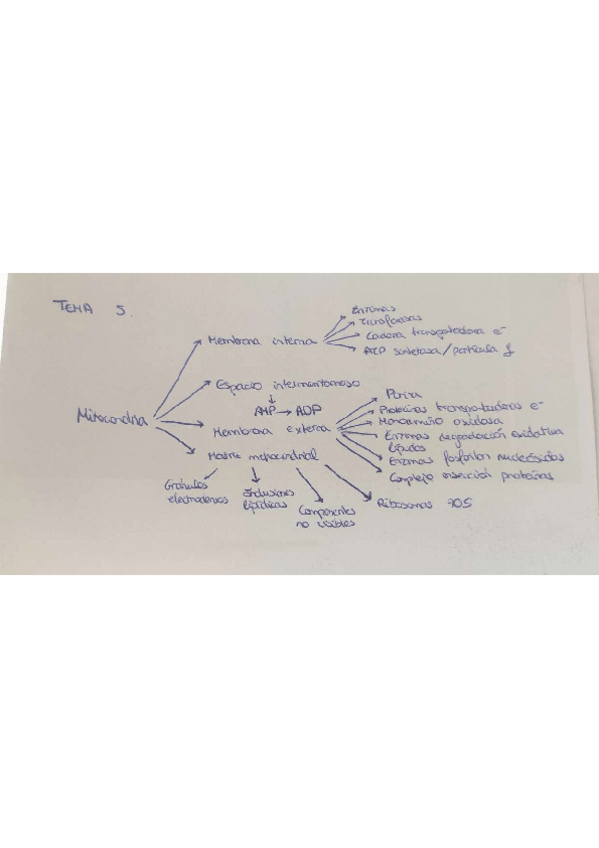 TEMA 5.
Enzimas
Membrana interna
Cadena transportadora e-
ATP sintetasa/partícula f
Espacio intermembranoso
AMP → ADP
Mitocondria
Membrana externa
Porina
Proteínas transportadoras e-
Monoamino oxidasa
Enzimas degradación oxidativa
lípidos
Enzimas fosforilan nucleósidos
Complejo inserción proteínas
Matriz mitocondrial
Gránulos
electrodensos
Inclusiones
lipídicas
Componentes
no visibles
Ribosomas 70S